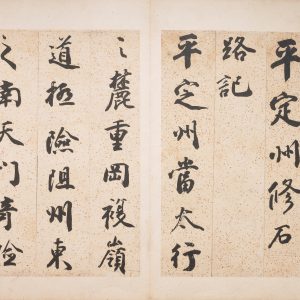 平定州修石
路記
平定州當太行
之麓重岡複嶺
道極險阻州東
之南天门青險